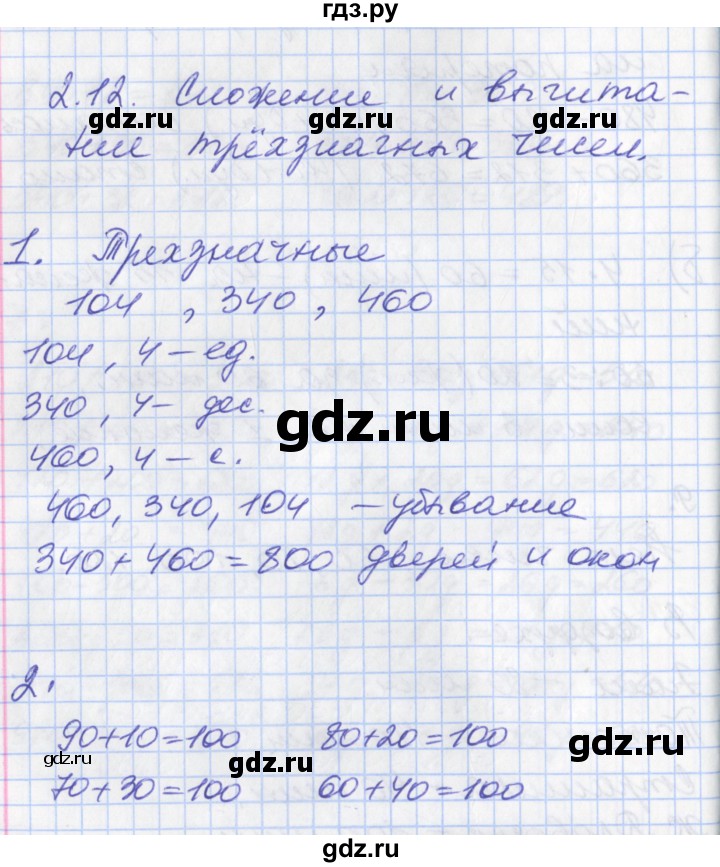 гдз.ру
2.12. Сложение и вычита-
ние трёхзначных чисел.
1. Трехзначные
104 , 340 , 460
104, 4 – ед.
340, 4 – дес.
460, 4 – с.
460, 340, 104 – убывание
340 + 460 = 800 дверей и окон
2.
90+10=100 80+20=100
70+30=100 60+40=100
gdz.ru
gdz.ru
gdz.ru
gdz.ru
gdz.ru
gdz.ru
gdz.ru